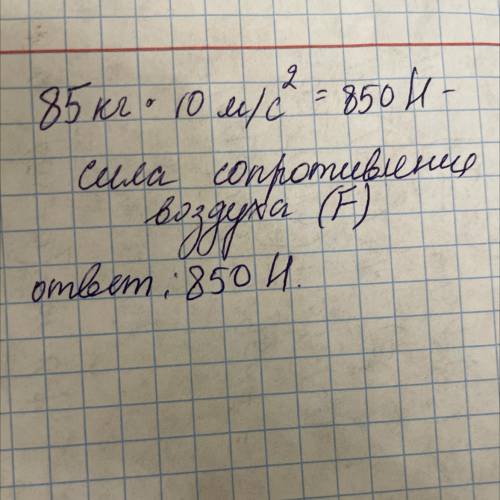 85 кг · 10 м/с² = 850 Н -
сила сопротивления
воздуха (F)
ответ: 850 Н.